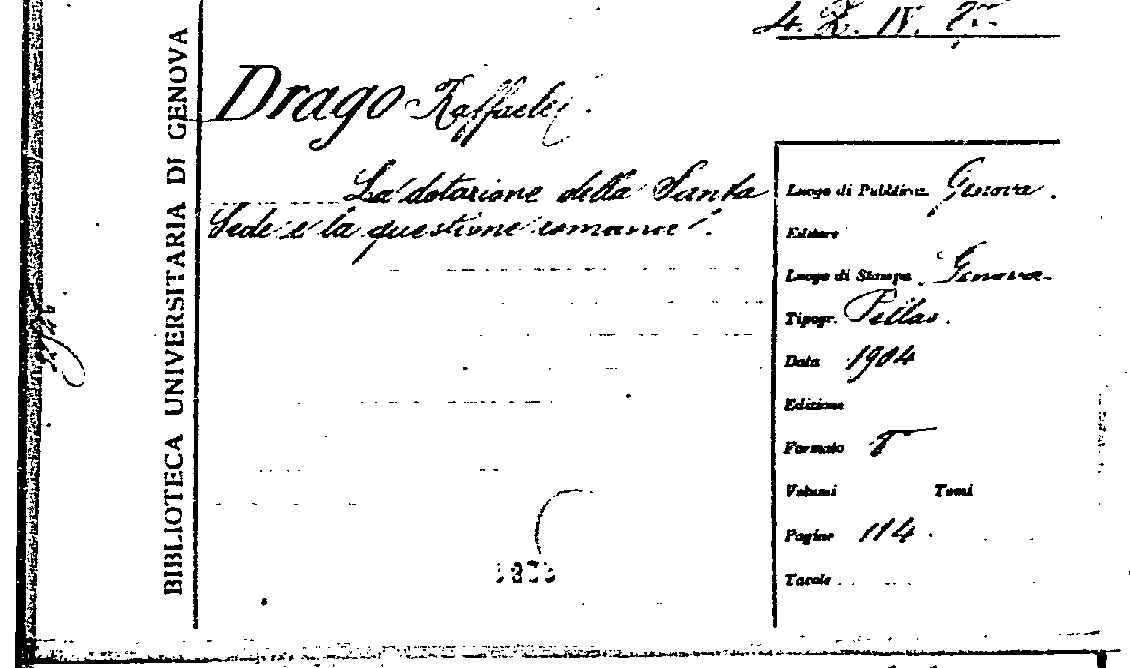 BIBLIOTECA UNIVERSITARIA DI GENOVA
4. Z. IV.
Drago Raffaele
La dotazione della Santa
Sede e la questione romana.
Luogo di Pubblicaz. Genova.
Editore
Luogo di Stampa Genova.
Tipogr. Pellas.
Data 1904
Edizione
Formato
Volumi Tomi
Pagine 114.
Tavole